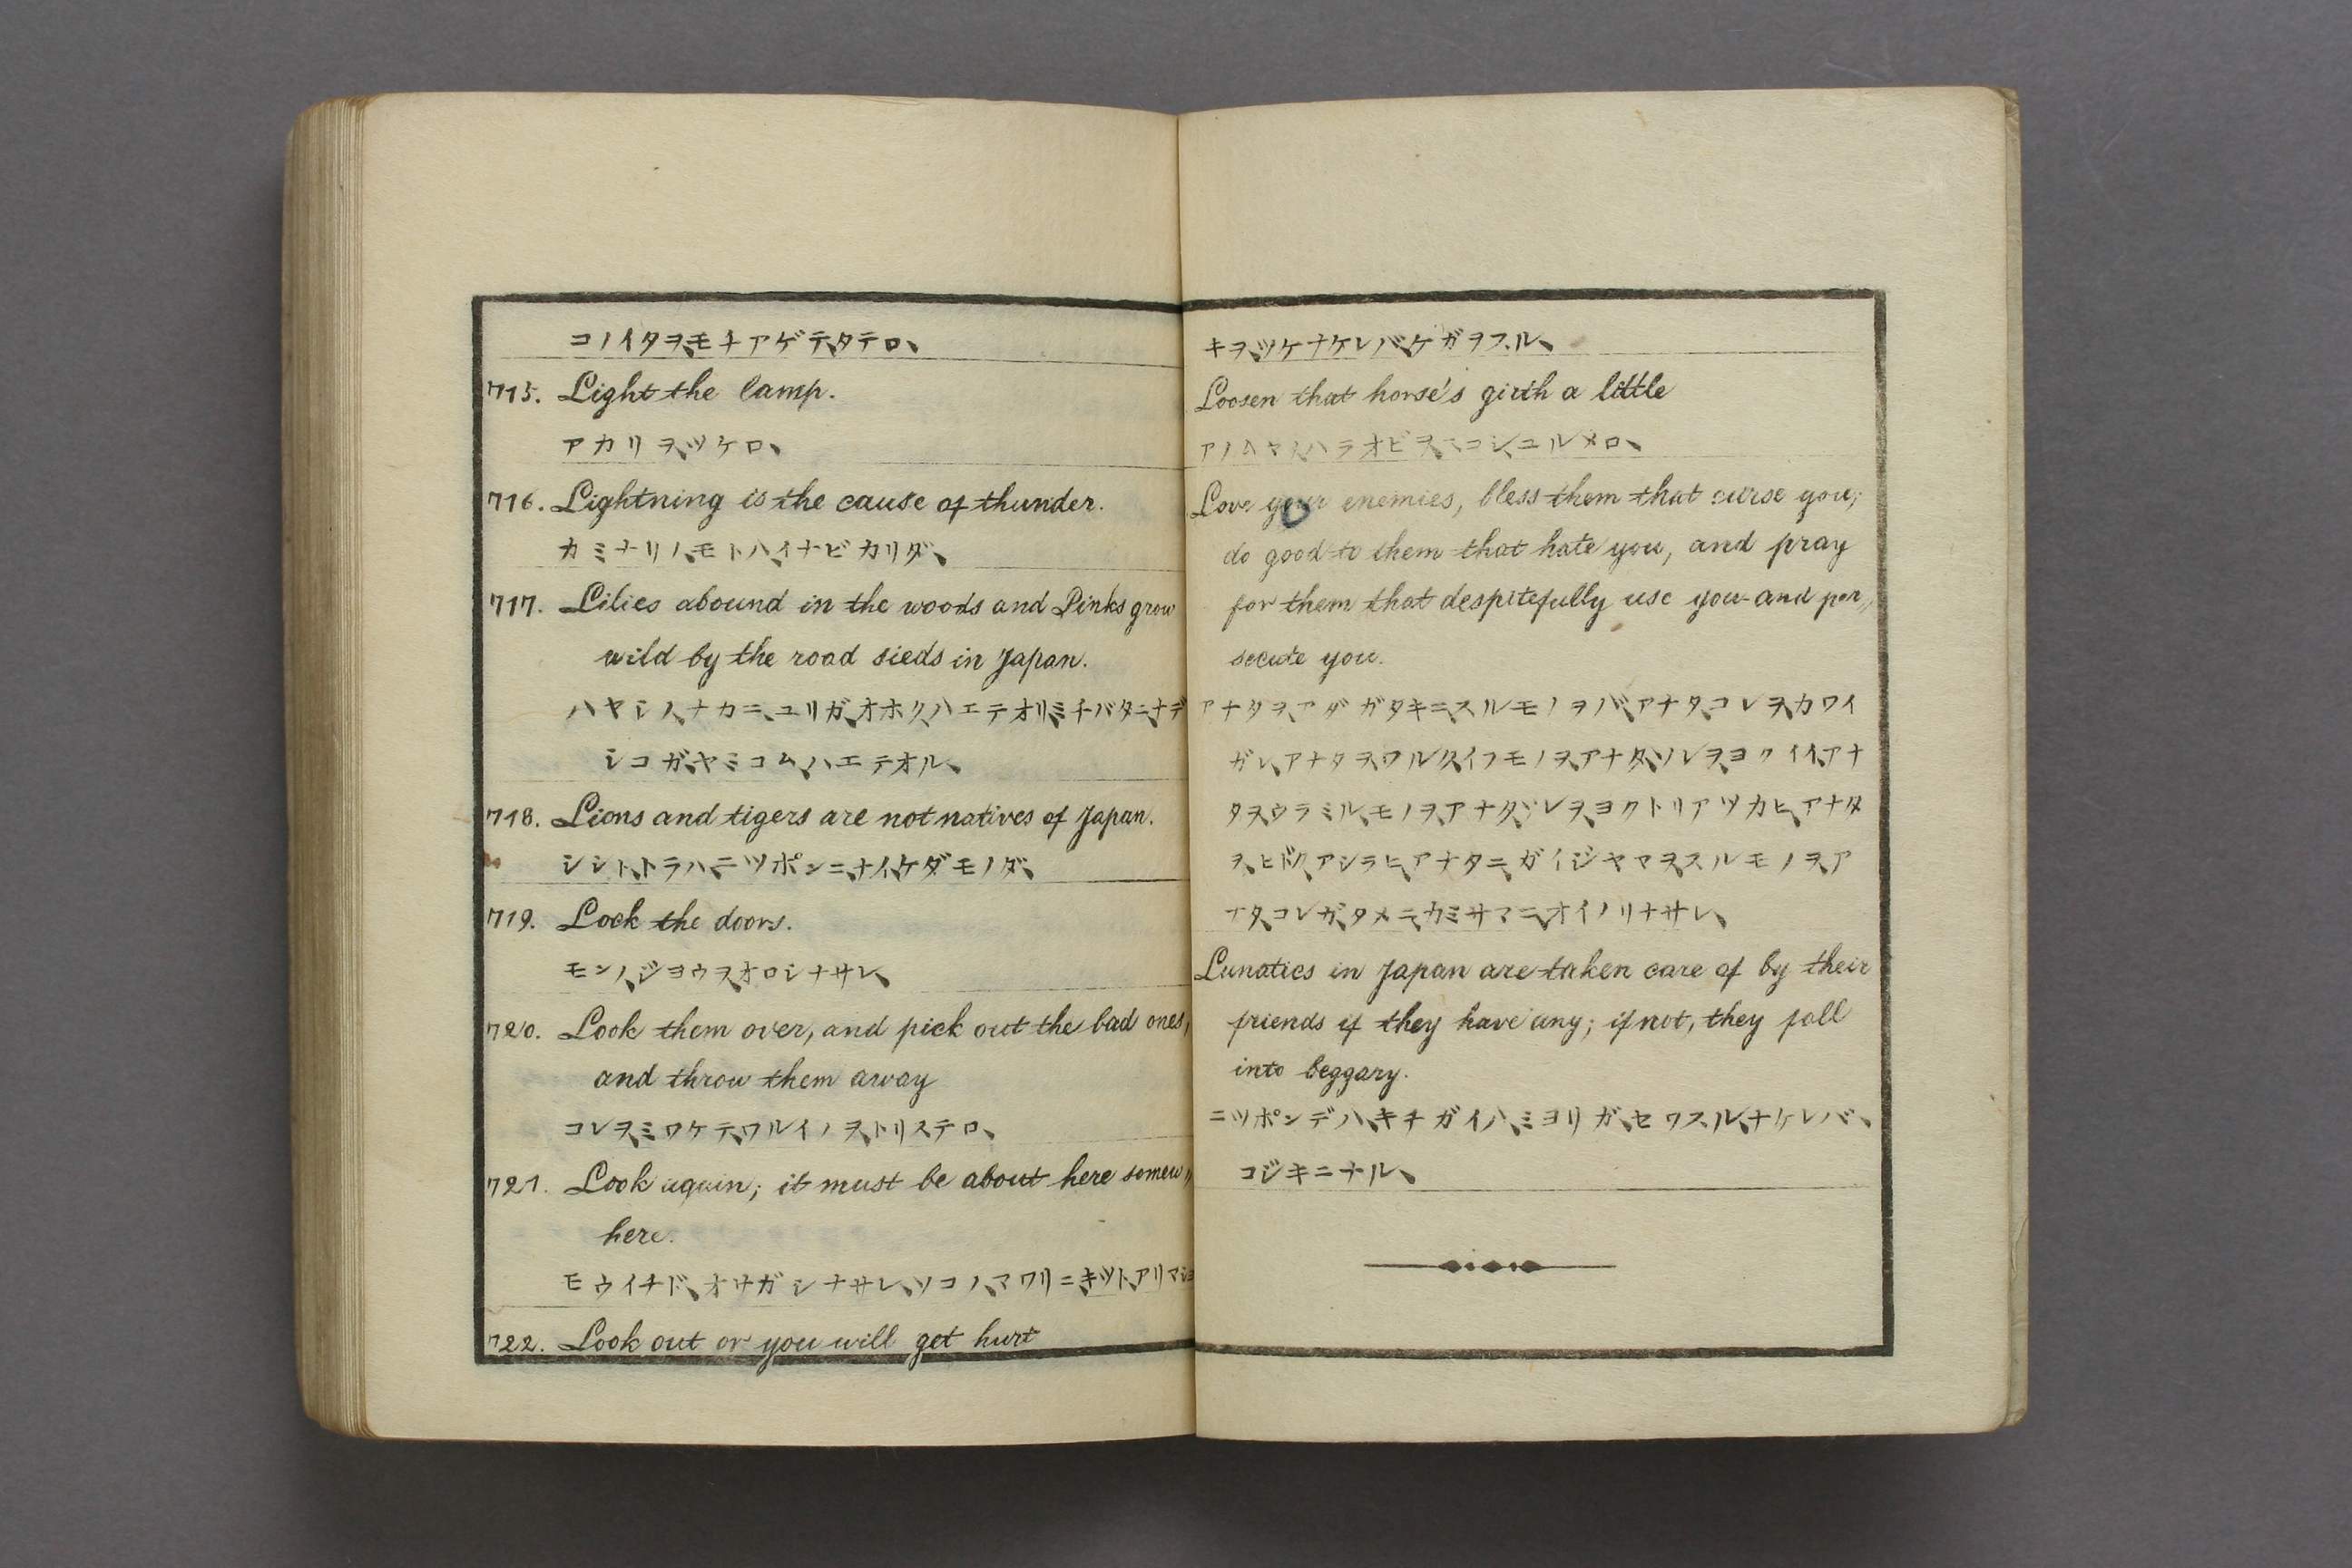 コノイタヲ、モチアゲテ、タテロ、
715. Light the lamp.
アカリヲ、ツケロ、
716. Lightning is the cause of thunder.
カミナリノ、モトハ、イナビカリダ、
717. Lilies abound in the woods and Pinks grow
wild by the road sieds in Japan.
ハヤシノ、ナカニ、ユリガ、オホク、ハエテオリ、ミチバタニ、ナデ
シコガ、ヤミコム、ハエテオル、
718. Lions and tigers are not natives of Japan.
シシト、トラハ、ニツポンニ、ナイ、ケダモノダ、
719. Lock the doors.
モンノ、ジヨウヲ、オロシナサレ、
720. Look them over, and pick out the bad ones,
and throw them away
コレヲ、ミワケテ、ワルイノヲ、トリステロ、
721. Look again; it must be about here somew〃
here.
モウイチド、オサガシナサレ、ソコノ、マワリニ、キツト、アリマシヨ
722. Look out or you will get hurt
キヲ、ツケナケレバ、ケガヲスル、
Loosen that horse's girth a little
アノムマノ、ハラオビヲ、スコシ、ユルメロ、
Love your enemies, bless them that curse you;
do good to them that hate you, and pray
for them that despitefully use you and per〃
secute you.
アナタヲ、アダガタキニ、スルモノヲバ、アナタ、コレヲ、カワイ
ガレ、アナタヲ、ワルク、イフモノヲ、アナタ、ソレヲ、ヨクイイ、アナ
タヲ、ウラミル、モノヲ、アナタ、ソレヲ、ヨクトリアツカヒ、アナタ
ヲ、ヒドク、アシラヒ、アナタニ、ガイジヤマヲ、スルモノヲ、ア
ナタ、コレガ、タメニ、カミサマニ、オイノリナサレ、
Lunatics in Japan are taken care of by their
friends if they have any; if not, they fall
into beggary.
ニツポンデハ、キチガイハ、ミヨリガ、セワスル、ナケレバ、
コジキニナル、